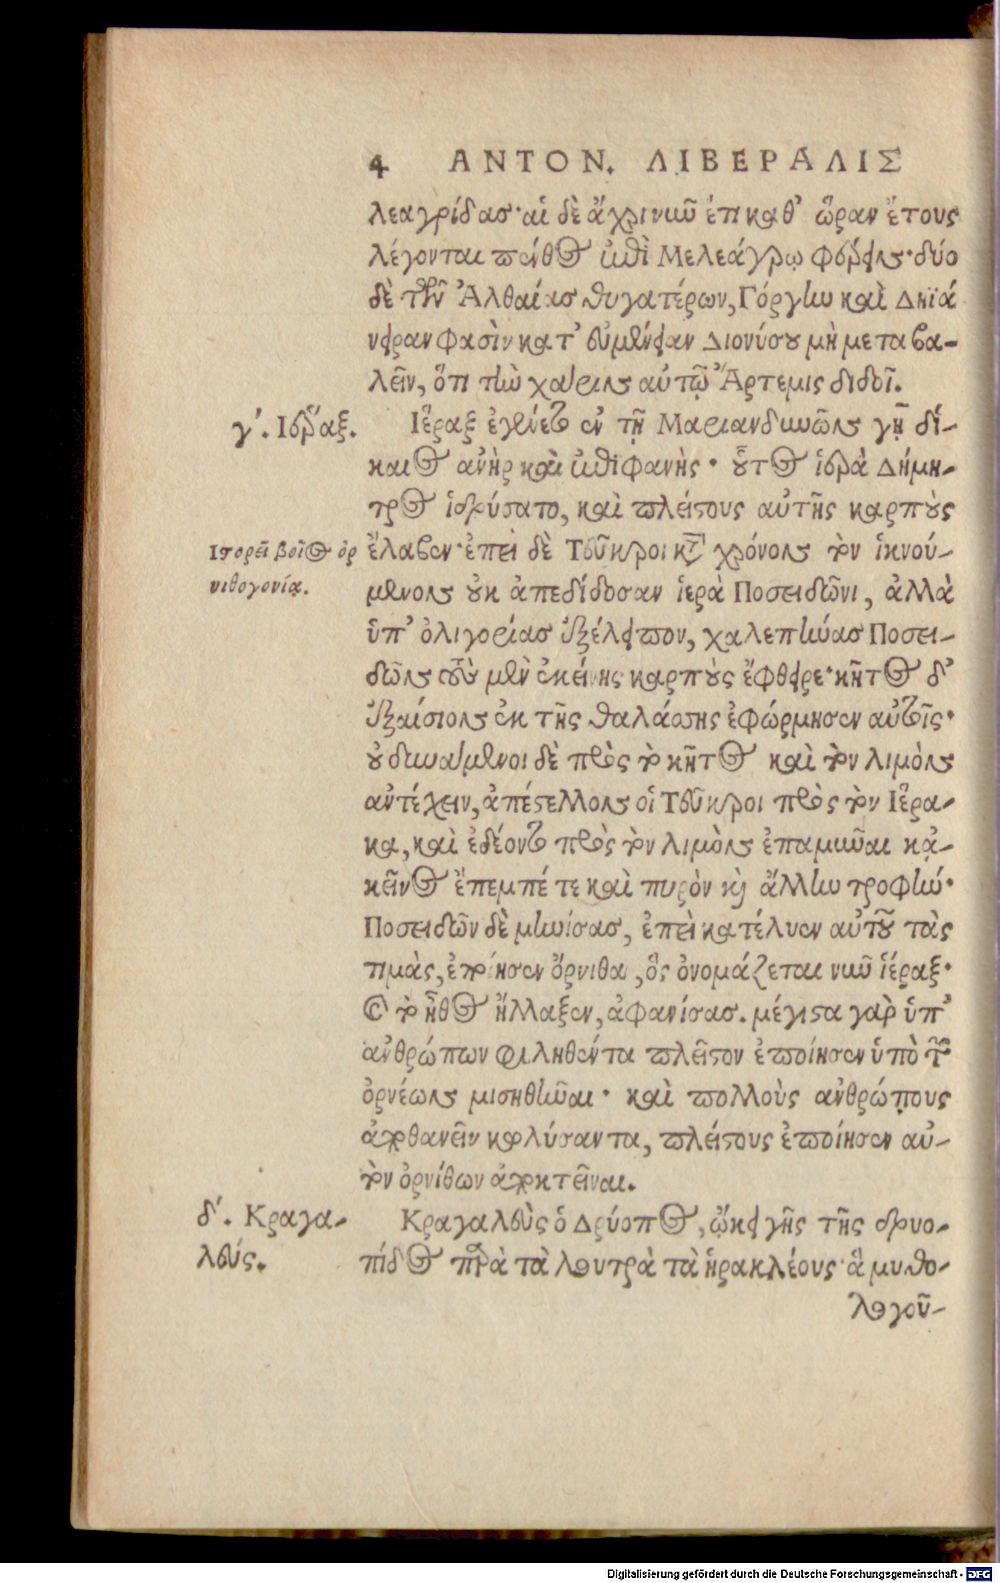 4 ΑΝΤΟΝ. ΛΙΒΕΡΑΛΙΣ
λεαγρίδας· αἱ δὲ ἄχρι νῦν ἐπὶ καθ' ὥραν ἔτους
λέγονται πένθος ἐπὶ Μελεάγρῳ φέρειν· δύο
δὲ τῶν Ἀλθαίας θυγατέρων, Γόργην καὶ Δηϊά
νειραν φασὶν κατ' εὐμένειαν Διονύσου μὴ μεταβα-
λεῖν, ὅτι τὴν χάριν αὐτῷ Ἄρτεμις διδοῖ.
γ'. Ιέραξ.
Ἱέραξ ἐγένετο ἐν τῇ Μαριανδυνῶν γῇ δί-
καιος ἀνὴρ καὶ ἐπιφανής· οὗτος ἱερὰ Δήμη-
τρος ἱδρύσατο, καὶ πλείστους αὐτῆς καρποὺς
Ιστορεῖ βοῖος ὀρ
νιθογονίᾳ.
ἔλαβεν· ἐπεὶ δὲ Τεῦκροι κατὰ χρόνον τὸν ἱκνού-
μενον οὐκ ἀπεδίδοσαν ἱερὰ Ποσειδῶνι, ἀλλὰ
ὑπ' ὀλιγορίας ἐξέλειπον, χαλεπήνας Ποσει-
δῶν τοὺς μὲν ἐκείνης καρποὺς ἔφθειρε· κῆτος δ'
ἐξαίσιον ἐκ τῆς θαλάσσης ἐφώρμησεν αὐτοῖς·
οὐ δυνάμενοι δὲ πρὸς τὸ κῆτος καὶ τὸν λιμὸν
ἀντέχειν, ἀπέστελλον οἱ Τεῦκροι πρὸς τὸν Ἱέρα-
κα, καὶ ἐδέοντο πρὸς τὸν λιμὸν ἐπαμῦναι κἀ-
κεῖνος ἔπεμπέ τε καὶ πυρὸν καὶ ἄλλην τροφήν·
Ποσειδῶν δὲ μηνίσας, ἐπεὶ κατέλυεν αὐτοῦ τὰς
τιμὰς, ἐποίησεν ὄρνιθα, ὃς ὀνομάζεται νῦν ἱέραξ·
καὶ τὸ ἦθος ἤλλαξεν, ἀφανίσας. μέγιστα γὰρ ὑπ'
ἀνθρώπων φιληθέντα πλεῖστον ἐποίησεν ὑπὸ τῶν
ὀρνέων μισηθῆναι· καὶ πολλοὺς ἀνθρώπους
ἀποθανεῖν κωλύσαντα, πλείστους ἐποίησεν αὐ-
τὸν ὀρνίθων ἀποκτεῖναι.
δ'. Κραγα-
λεύς.
Κραγαλεὺς ὁ Δρύοπος, ᾤκει γῆς τῆς δρυο-
πίδος παρὰ τὰ λουτρὰ τὰ ἡρακλέους· ἃ μυθο-
λογοῦ-
Digitalisierung gefördert durch die Deutsche Forschungsgemeinschaft - DFG